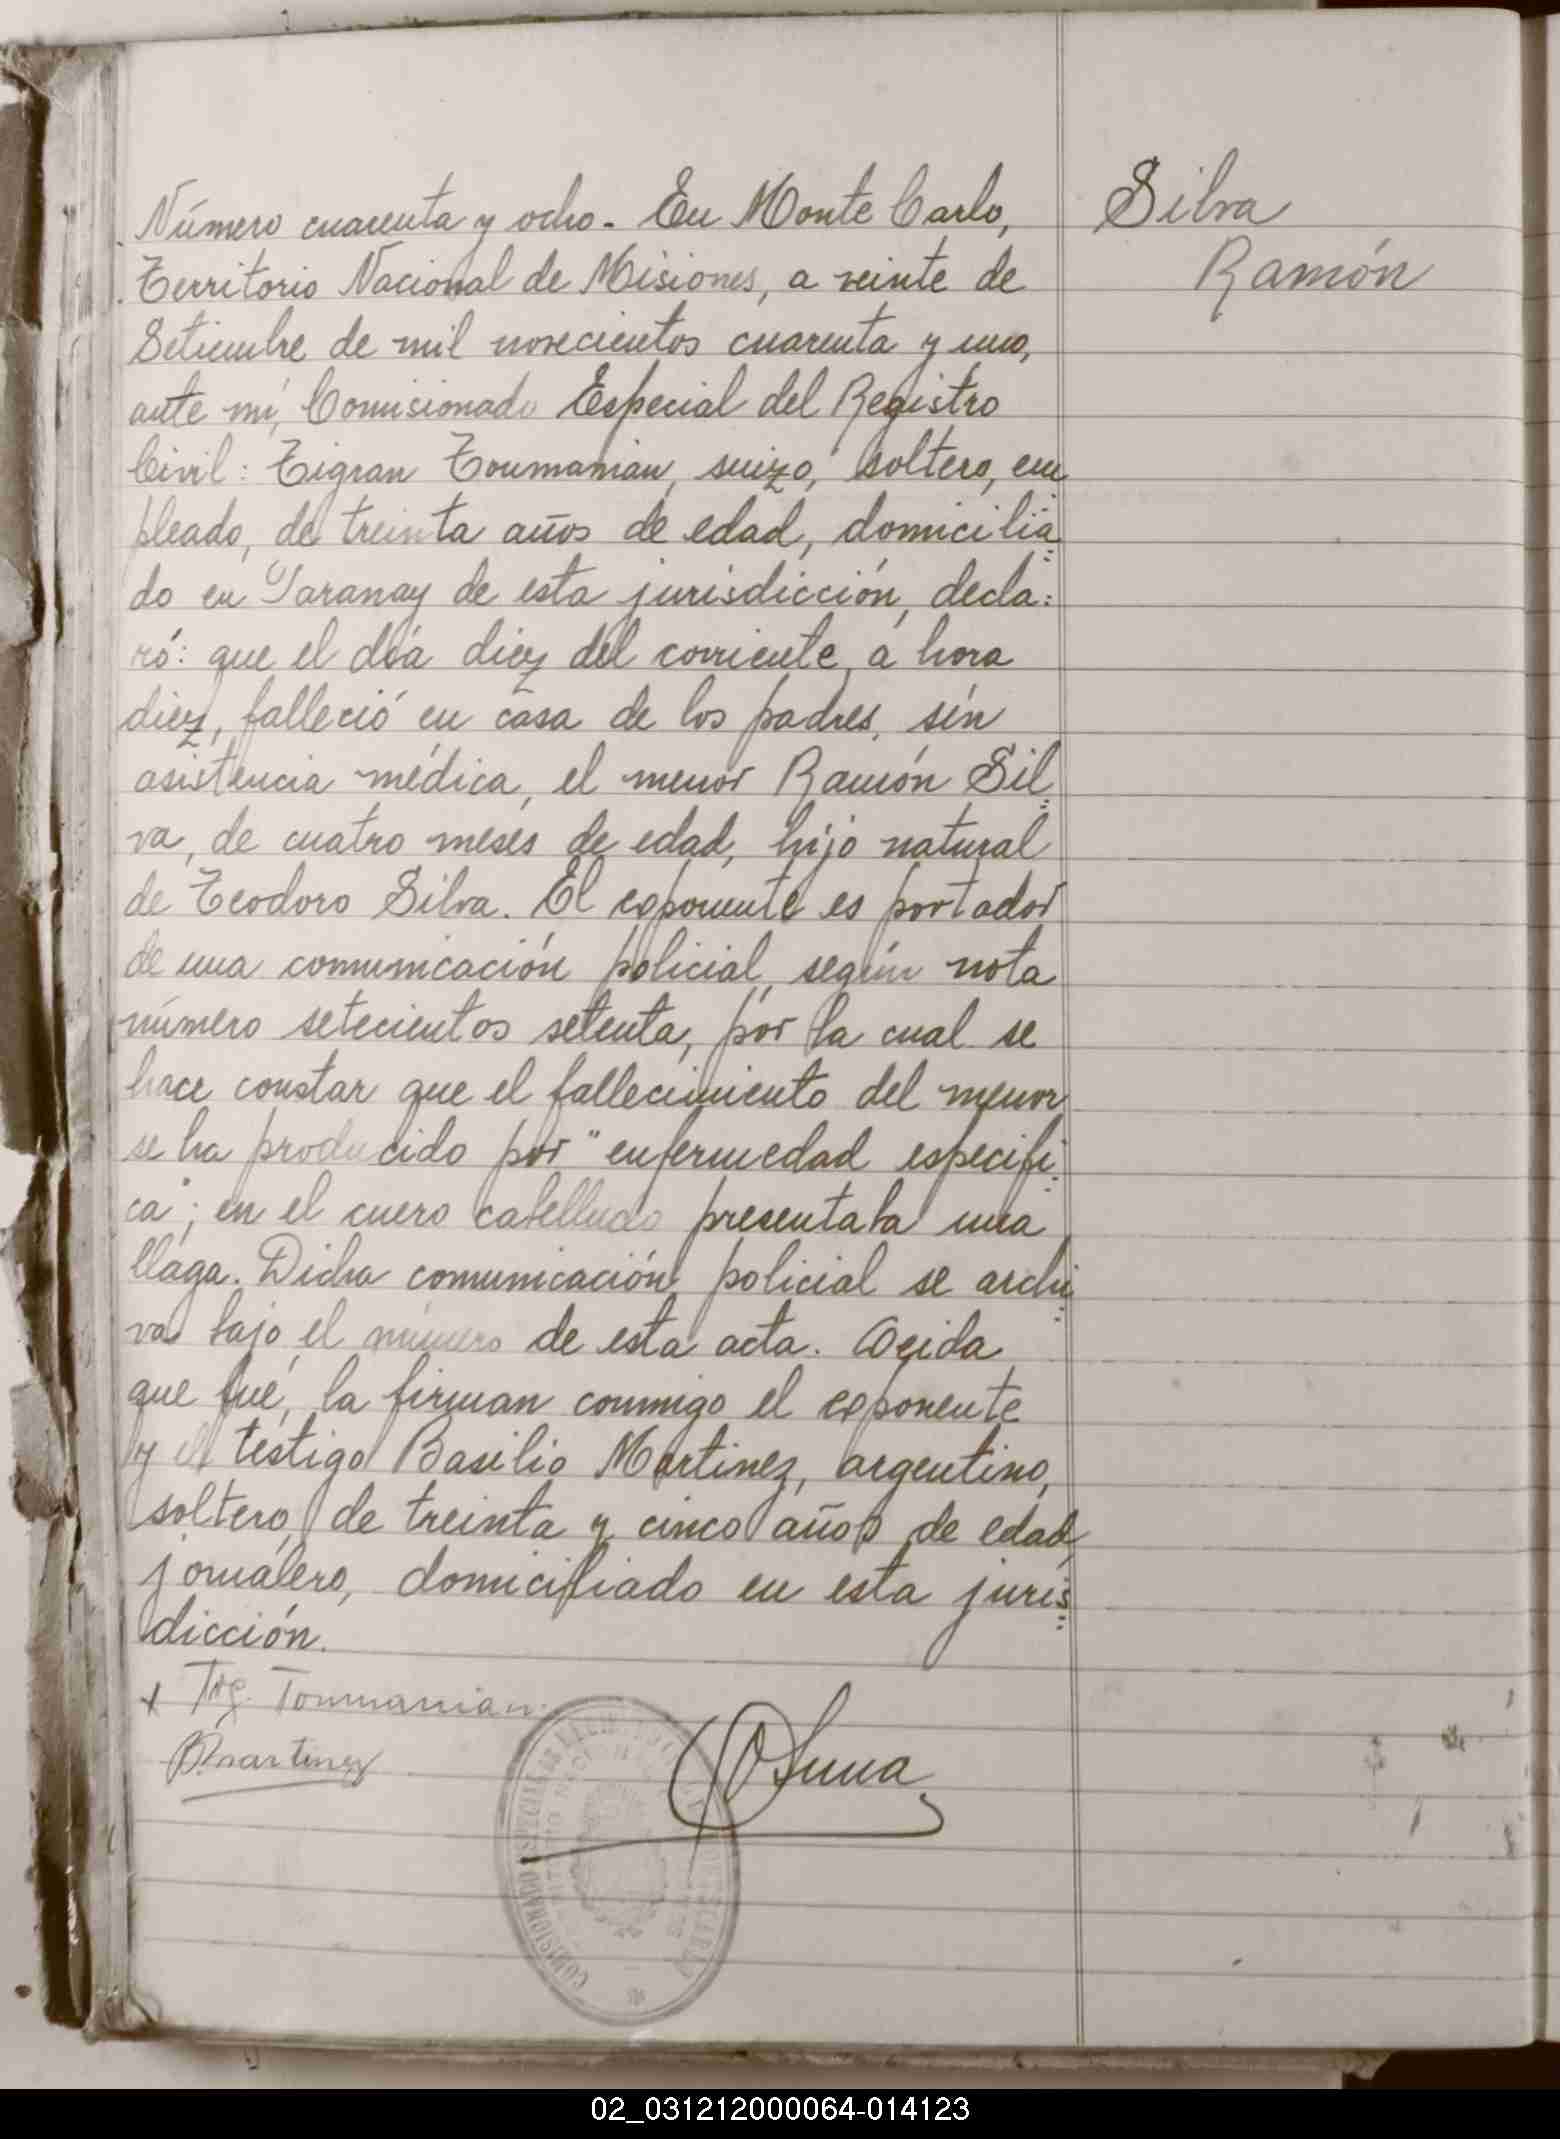 Número cuarenta y ocho. En Monte Carlo,
Territorio Nacional de Misiones, a veinte de
Setiembre de mil novecientos cuarenta y uno,
ante mí, Comisionado Especial del Registro
Civil: Tigran Toumanian, suizo, soltero, em
pleado, de treinta años de edad, domicilia=
do en Taranay de esta jurisdicción, decla=
ró: que el día diez del corriente, a hora
diez, falleció en casa de los padres, sin
asistencia médica, el menor Ramón Sil=
va, de cuatro meses de edad, hijo natural
de Teodoro Silva. El exponente es portador
de una comunicación policial, según nota
número setecientos setenta, por la cual se
hace constar que el fallecimiento del menor
se ha producido por "enfermedad especifi=
ca"; en el cuero cabelludo presentaba una
llaga. Dicha comunicación policial se archi=
va bajo el número de esta acta. Leida
que fué, la firman conmigo el exponente
y el testigo Basilio Martinez, argentino,
soltero, de treinta y cinco años de edad,
jornalero, domiciliado en esta juris=
dicción.
Silva
Ramón
x Tig. Toumanian.
B. Martinez
Osuna
COMISIONADO ESPECIAL
02_031212000064-014123